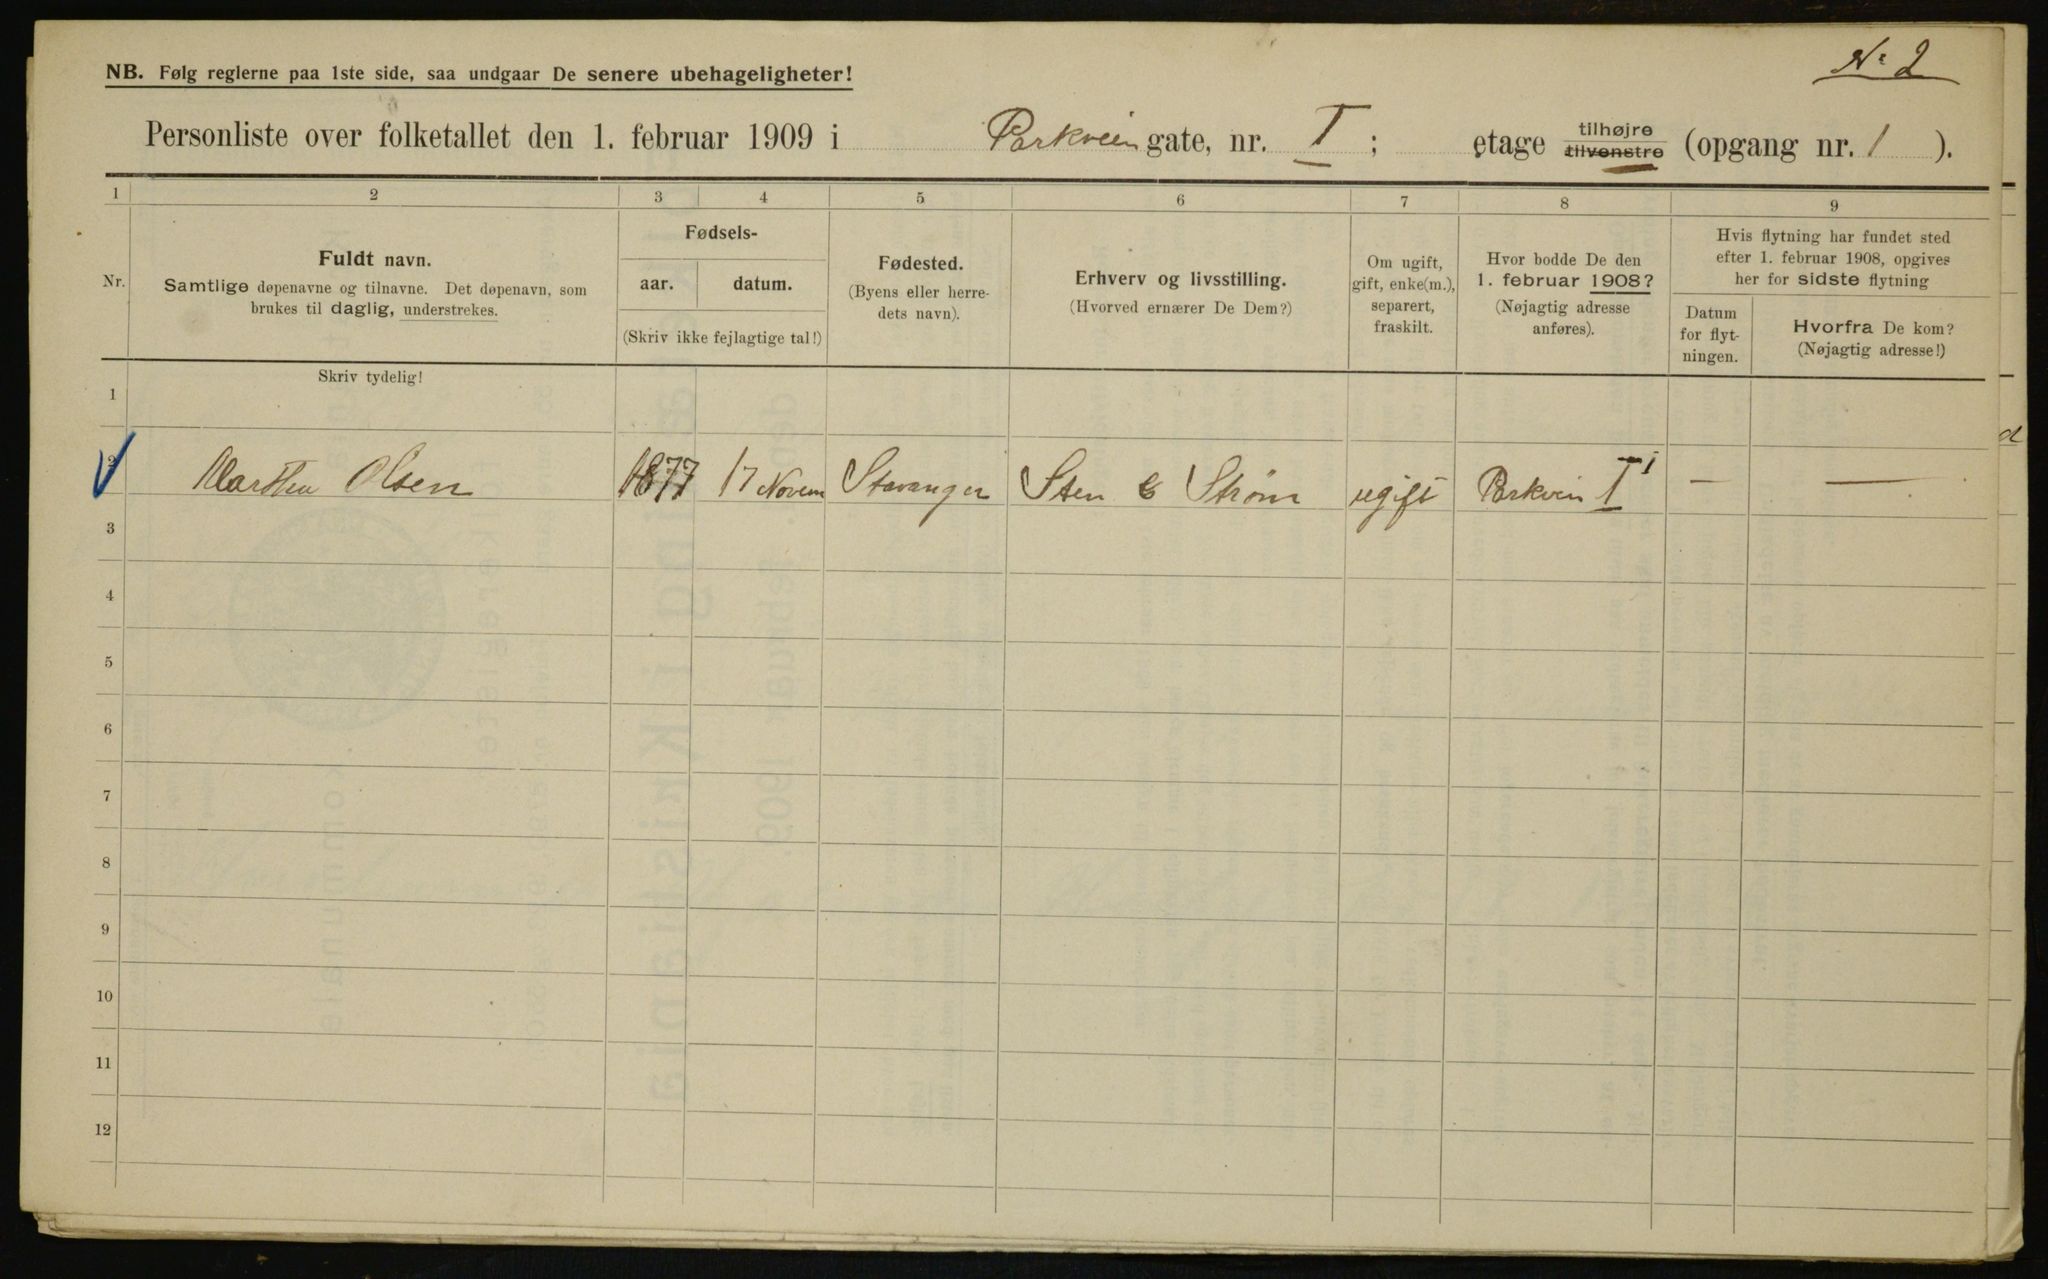 Nr. 2
NB. Følg reglerne paa 1ste side, saa undgaar De senere ubehageligheter!
Personliste over folketallet den 1. februar 1909 i Parkveien gate, nr. I; etage tilhøjre tilvenstre (opgang nr. 1).
1 2 3 4 5 6 7 8 9
Nr.
Fuldt navn.
Samtlige døpenavne og tilnavne. Det døpenavn, som
brukes til daglig, understrekes.
Fødsels-
aar. datum.
(Skriv ikke fejlagtige tal!)
Fødested.
(Byens eller herre-
dets navn).
Erhverv og livsstilling.
(Hvorved ernærer De Dem?)
Om ugift,
gift, enke(m.),
separert,
fraskilt.
Hvor bodde De den
1. februar 1908?
(Nøjagtig adresse
anføres).
Hvis flytning har fundet sted
efter 1. februar 1908, opgives
her for sidste flytning
Datum
for flyt-
ningen.
Hvorfra De kom?
(Nøjagtig adresse!)
Skriv tydelig!
1
2 Marthea Olsen 1877 17 Novem Stavanger Sten & Strøm ugift Parkvein I — —
3
4
5
6
7
8
9
10
11
12